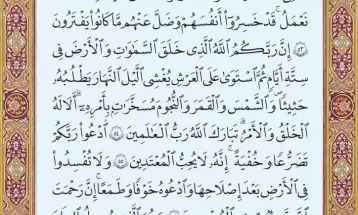 نَعْمَلُ ۚ قَدْ خَسِرُوٓا۟ أَنفُسَهُمْ وَضَلَّ عَنْهُم مَّا كَانُوا۟ يَفْتَرُونَ
٥٣ إِنَّ رَبَّكُمُ ٱللَّهُ ٱلَّذِى خَلَقَ ٱلسَّمَٰوَٰتِ وَٱلْأَرْضَ فِى
سِتَّةِ أَيَّامٍ ثُمَّ ٱسْتَوَىٰ عَلَى ٱلْعَرْشِ يُغْشِى ٱلَّيْلَ ٱلنَّهَارَ يَطْلُبُهُۥ
حَثِيثًا وَٱلشَّمْسَ وَٱلْقَمَرَ وَٱلنُّجُومَ مُسَخَّرَٰتٍۭ بِأَمْرِهِۦٓ ۗ أَلَا لَهُ
ٱلْخَلْقُ وَٱلْأَمْرُ ۗ تَبَارَكَ ٱللَّهُ رَبُّ ٱلْعَٰلَمِينَ ٥٤ ٱدْعُوا۟ رَبَّكُمْ
تَضَرُّعًا وَخُفْيَةً ۚ إِنَّهُۥ لَا يُحِبُّ ٱلْمُعْتَدِينَ ٥٥ وَلَا تُفْسِدُوا۟
فِى ٱلْأَرْضِ بَعْدَ إِصْلَٰحِهَا وَٱدْعُوهُ خَوْفًا وَطَمَعًا ۚ إِنَّ رَحْمَتَ